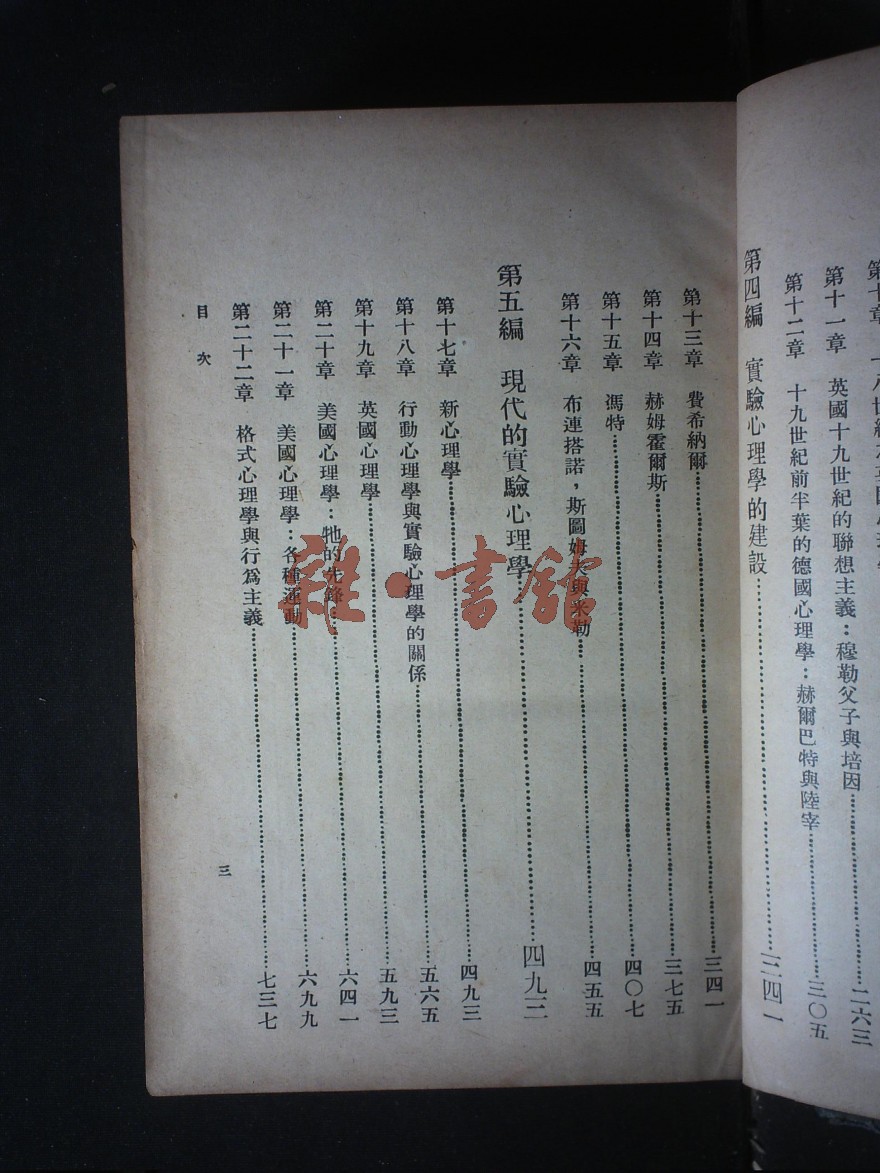 第十一章　英國十九世紀的聯想主義：穆勒父子與培因……二六三
第十二章　十九世紀前半葉的德國心理學：赫爾巴特與陸宰……三〇五
第四編　實驗心理學的建設……三四一
第十三章　費希納爾……三四一
第十四章　赫姆霍爾斯……三七五
第十五章　馮特……四〇七
第十六章　布連搭諾，斯圖姆夫與米勒……四五五
第五編　現代的實驗心理學……四九三
第十七章　新心理學……四九三
第十八章　行動心理學與實驗心理學的關係……五六五
第十九章　英國心理學……五九三
第二十章　美國心理學：牠的先鋒……六四一
第二十一章　美國心理學：各種運動……六九九
第二十二章　格式心理學與行爲主義……七三七
目次
三
雜·書館